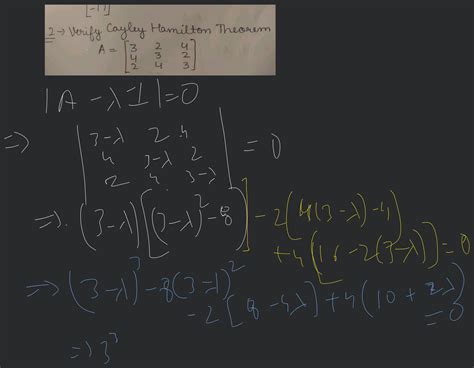 [-17]
2 → Verify Cayley Hamilton Theorem
A = [3 2 4
4 3 2
2 4 3]
|A - λI| = 0
⇒ |3-λ 2 4
4 3-λ 2
2 4 3-λ| = 0
⇒ (3-λ)[(3-λ)² - 8] - 2(4(3-λ) - 4)
+ 4(16 - 2(3-λ)) = 0
⇒ (3-λ)³ - 8(3-λ)²
- 2[8 - 4λ] + 4(10 + 2λ)
= 0
⇒ 3³